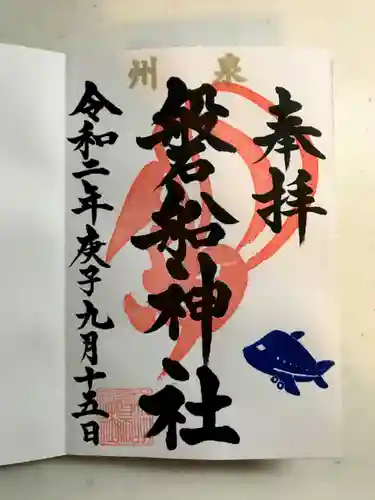 泉州
奉拝
磐船神社
令和二年庚子九月十五日